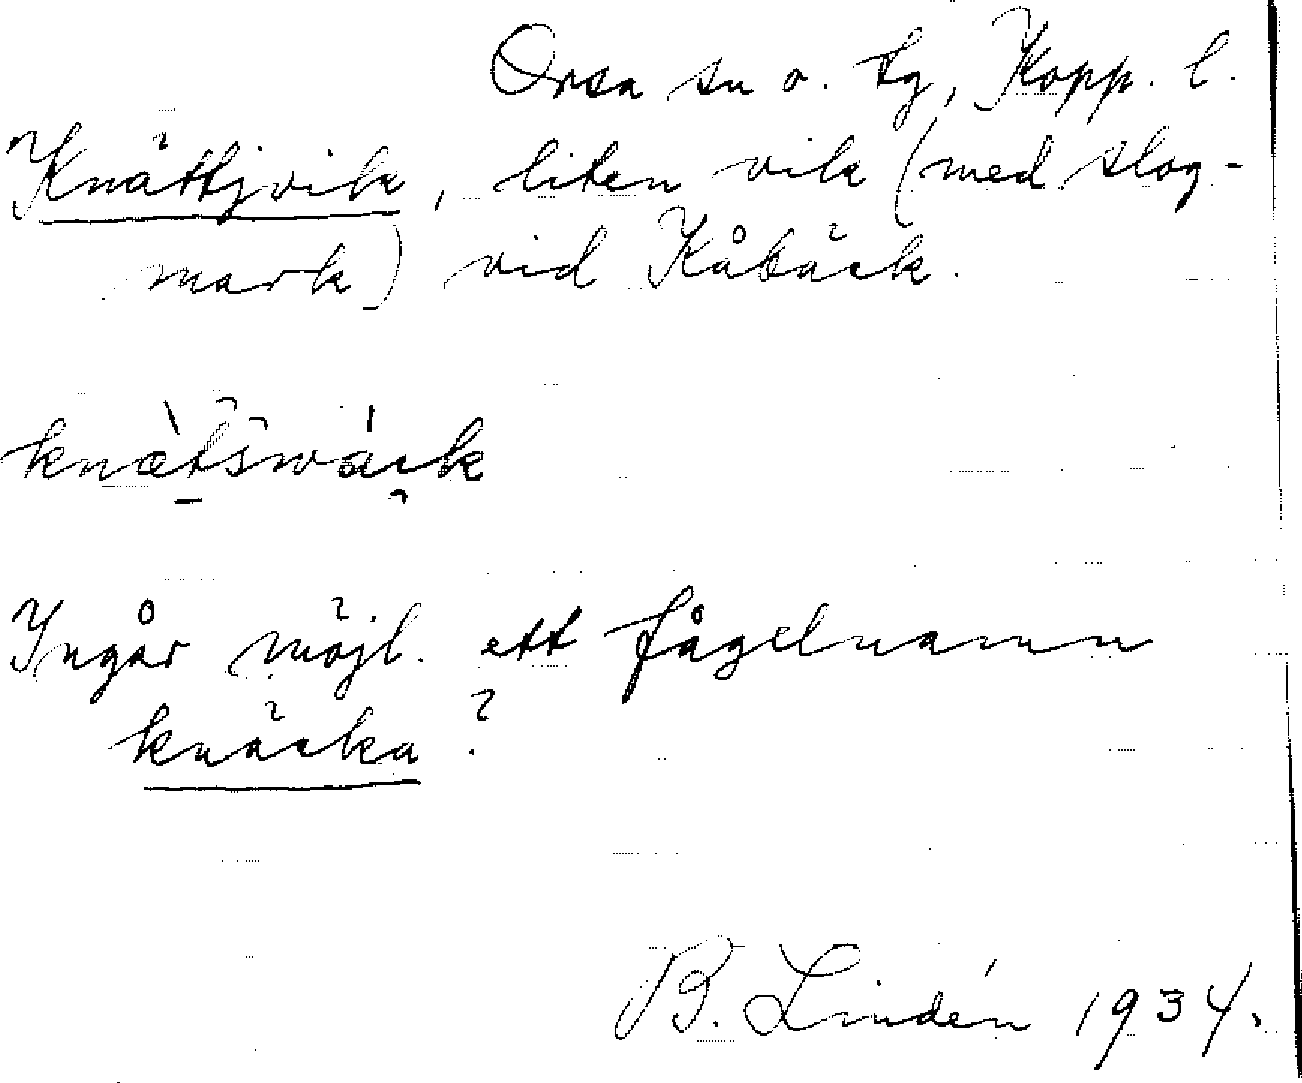 Orsa sn o. tg, Kopp. l.
Knättjvik, liten vik (med slog-
mark) vid Kåbäck.
Ingår möjl. ett fågelnamn
knäcka?
B. Lindén 1934.